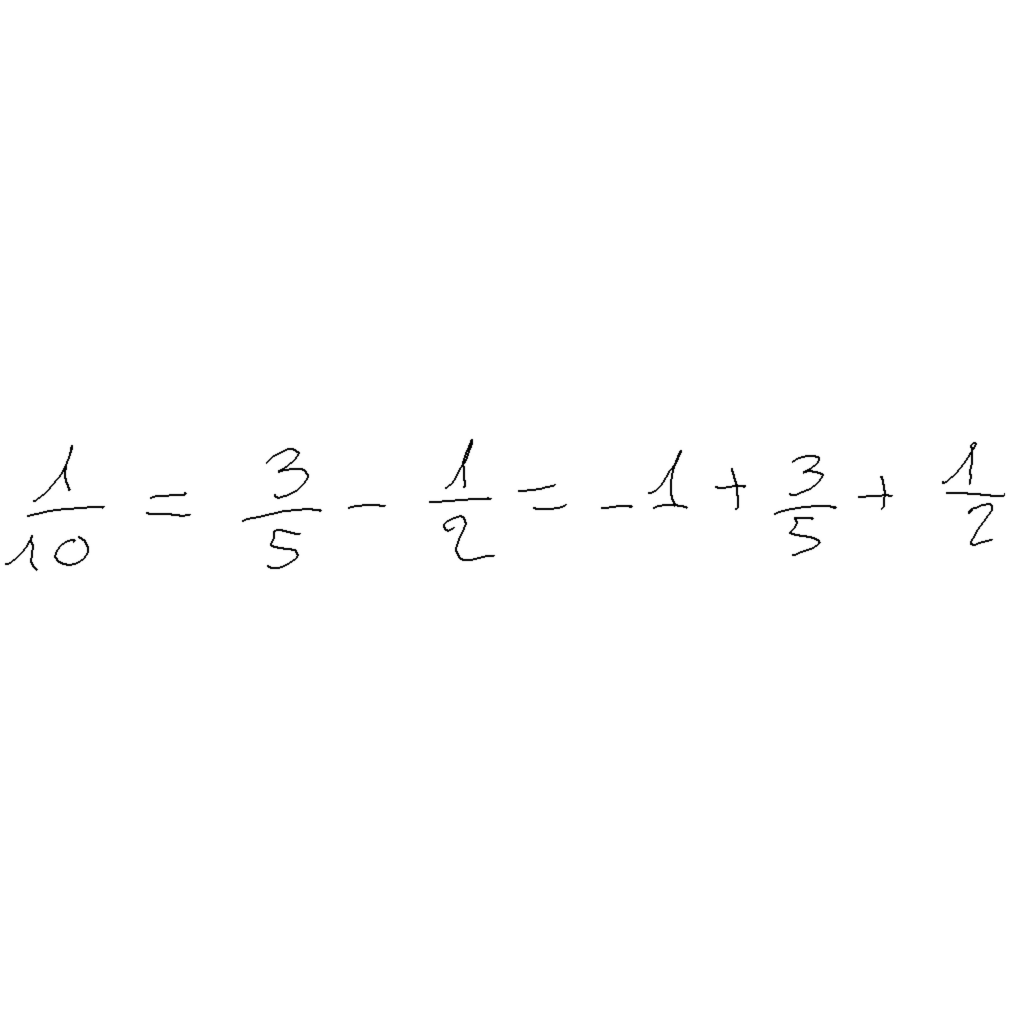 1/10 = 3/5 - 1/2 = -1 + 3/5 + 1/2